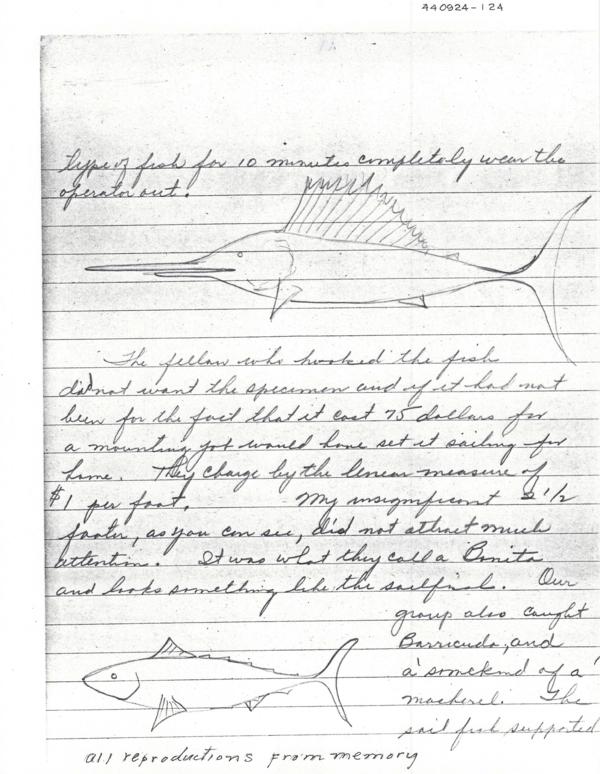 440924-124
type of fish for 10 minutes completely wear the
operator out.
The fellow who hooked the fish
did not want the specimen and if it had not
been for the fact that it cost 75 dollars for
a mounting job would have set it sailing for
home. They charge by the linear measure of
$1 per foot. My insignificant 2 1/2
footer, as you can see, did not attract much
attention. It was what they call a Bonita
and looks something like the sailfind. Our
group also caught
Barricuda, and
a 'somekind of a'
mackerel. The
sail fish supported
all reproductions from memory